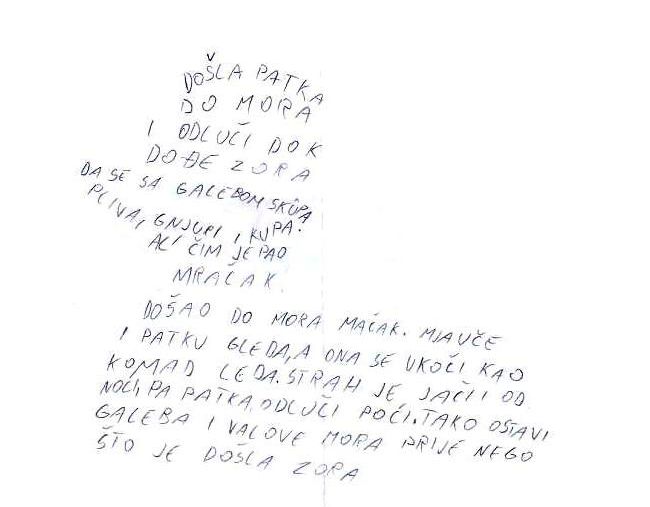 DOŠLA PATKA
DO MORA
I ODLUČI DOK
DOĐE ZORA
DA SE SA GALEBOM SKUPA
PLIVA, GNJURI I KUPA.
ALI ČIM JE PAO
MRAČAK.
DOŠAO DO MORA MAČAK. MJAUČE
I PATKU GLEDA, A ONA SE UKOČI KAO
KOMAD LEDA. STRAH JE JAČI I OD
NOĆI, PA PATKA ODLUČI POĆI. TAKO OSTAVI
GALEBA I VALOVE MORA PRIJE NEGO
ŠTO JE DOŠLA ZORA